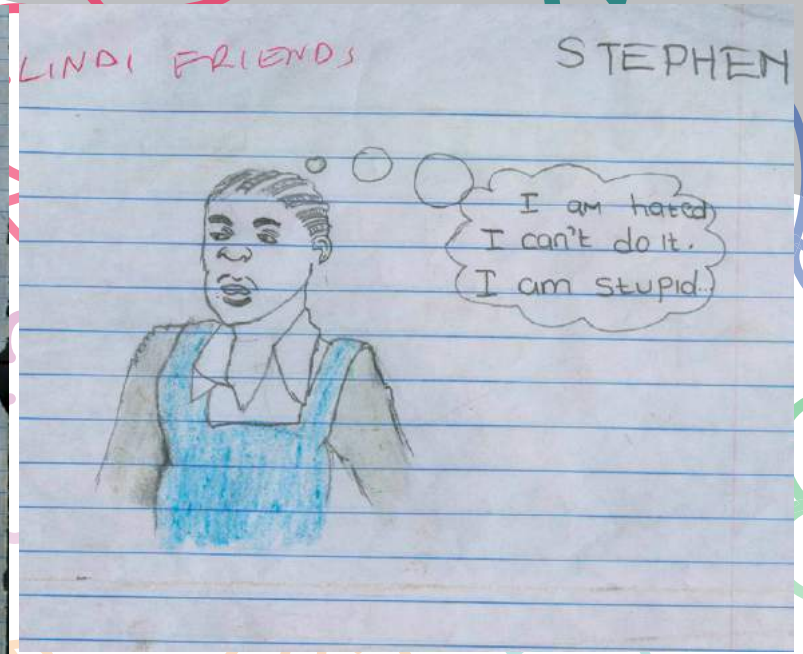 LINDI FRIENDS
STEPHEN
I am hated
I can't do it.
I am stupid..